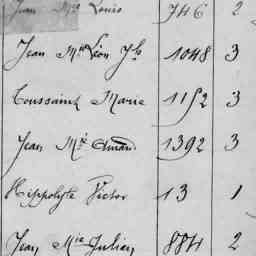 Jean Mie Louis 746 2
Jean Mie Léon 1048 3
Toussaint Marie 1152 3
Jean Mie Amand 1392 3
Hippolyte Victor 13 1
Jean Mie Julien 884 2